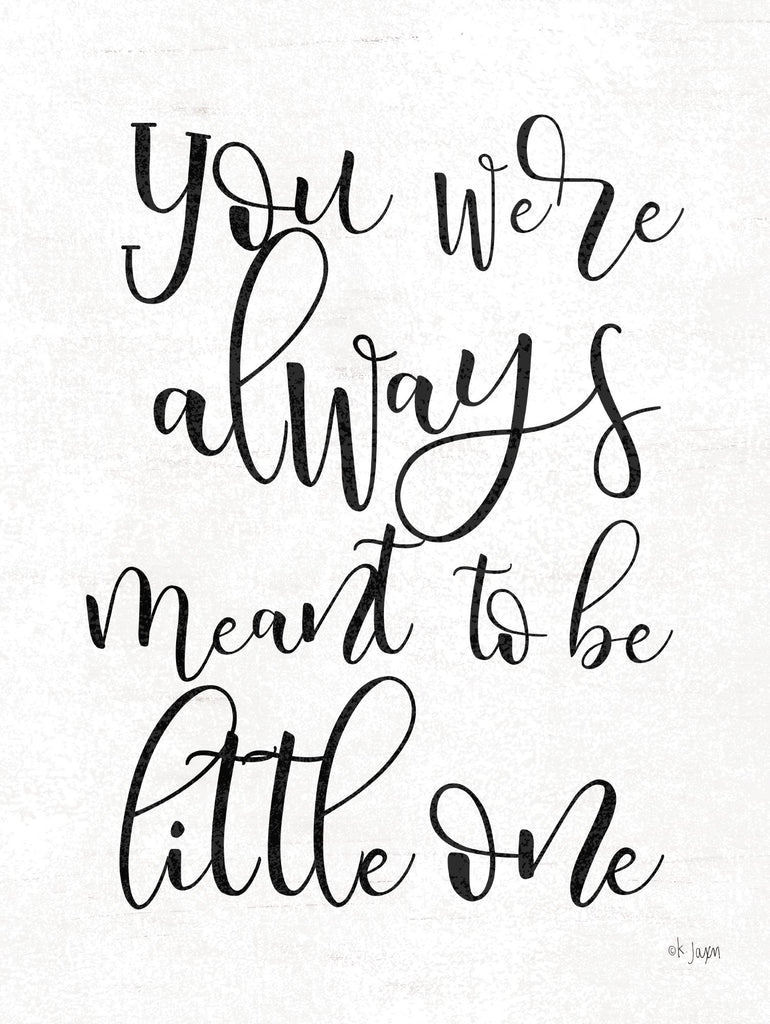 You were
always
meant to be
little one
©K. Jaxn